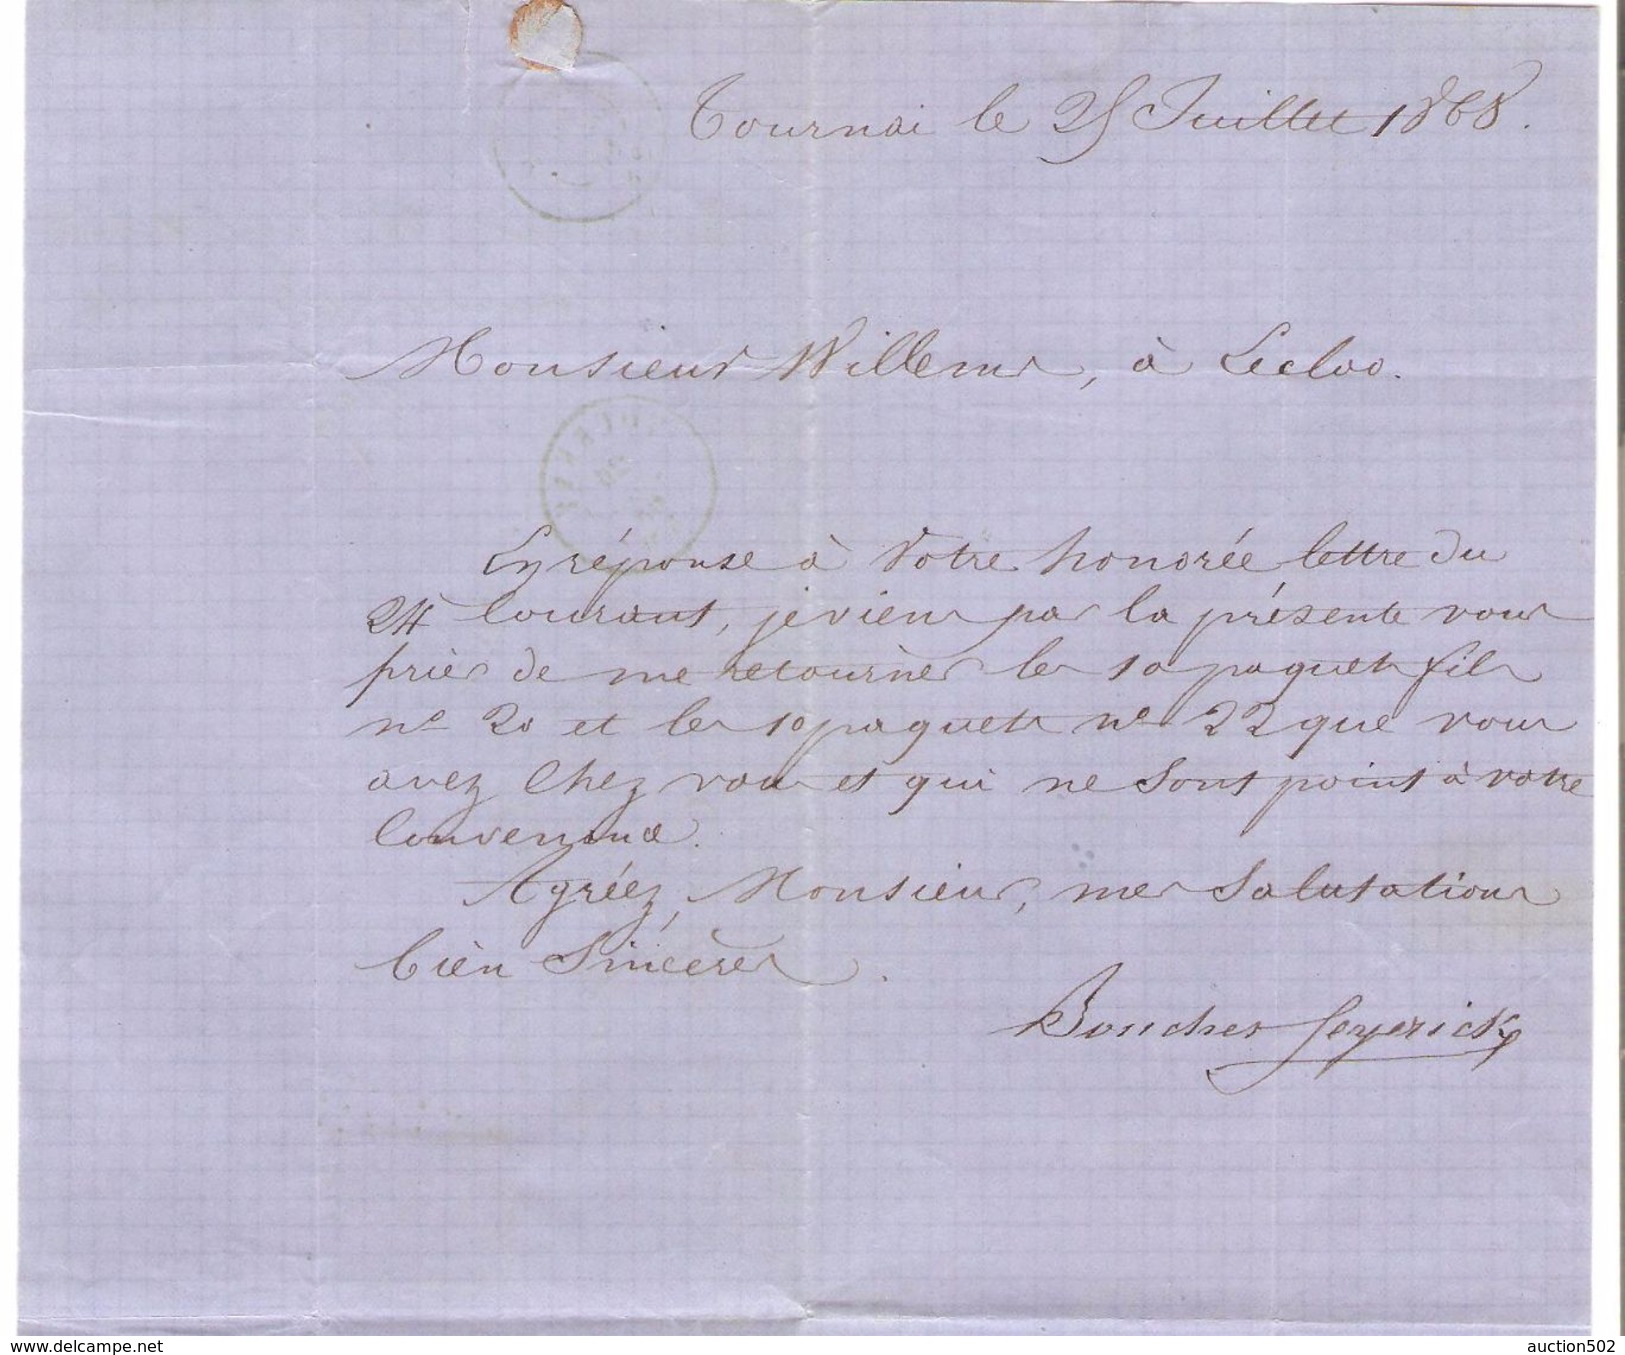 Tournai le 25 Juillet 1868.
Monsieur Willems, à Lecloo.
En réponse à Votre honorée lettre du
24 Courant, je viens par la présente vous
prier de me retourner les 10 paquets fils
n° 20 et les 10 paquets n° 22 que vous
avez Chez vous et qui ne Sont point à votre
Convenance.
Agréez, Monsieur, mes Salutations
bien Sincères.
Boucher
www.delcampe.net
auction502